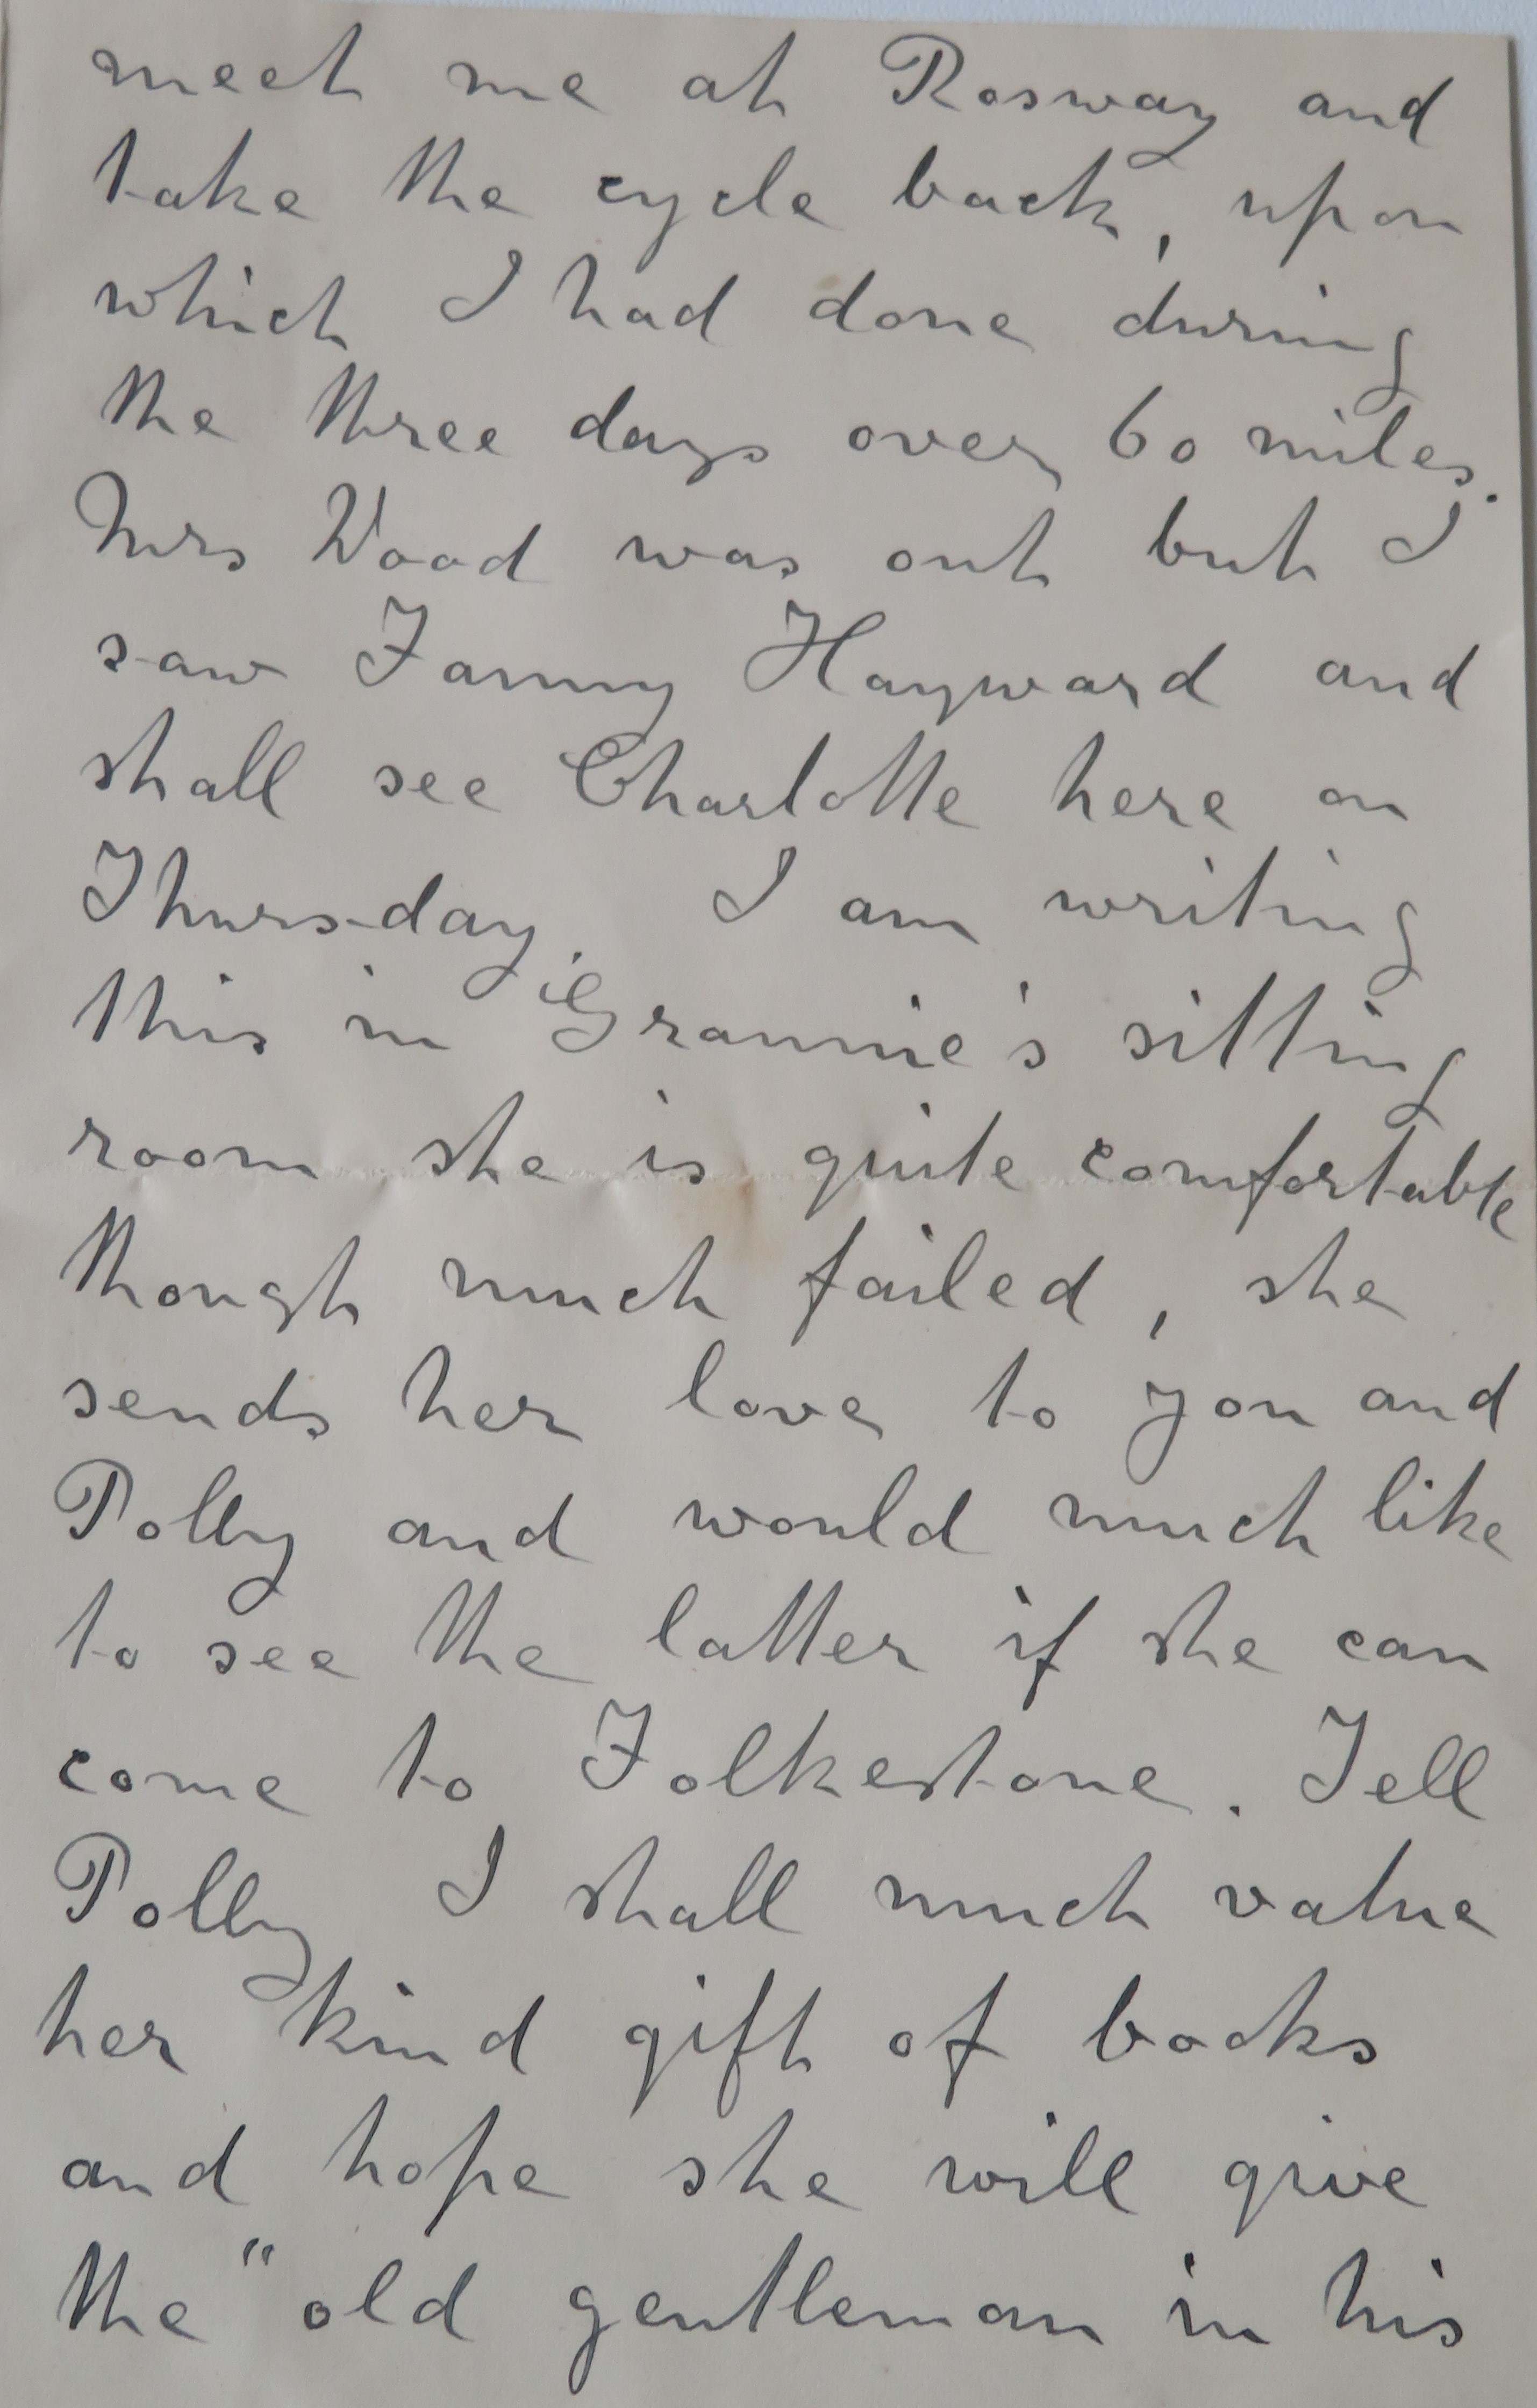 meet me at Rosway and
take the cycle back, upon
which I had done during
the three days over 60 miles.
Mrs Wood was out but I
saw Fanny Hayward and
shall see Charlotte here on
Thursday. I am writing
this in Grannie's sitting
room she is quite comfortable
though much failed, she
sends her love to you and
Polly and would much like
to see the latter if she can
come to Folkestone. Tell
Polly I shall much value
her kind gift of books
and hope she will give
the "old gentleman in his